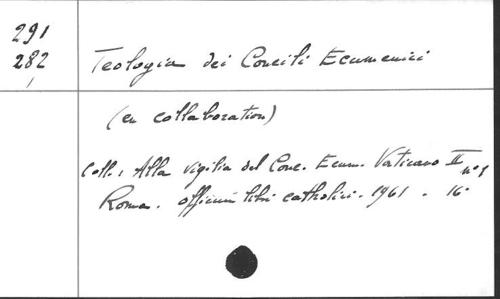 291
282
Teologia dei Concili Ecumenici
(en collaboration)
Coll.: Alla vigilia del Conc. Ecum. Vaticano II n° 1
Roma. Officium libri catholici. 1961. 16°